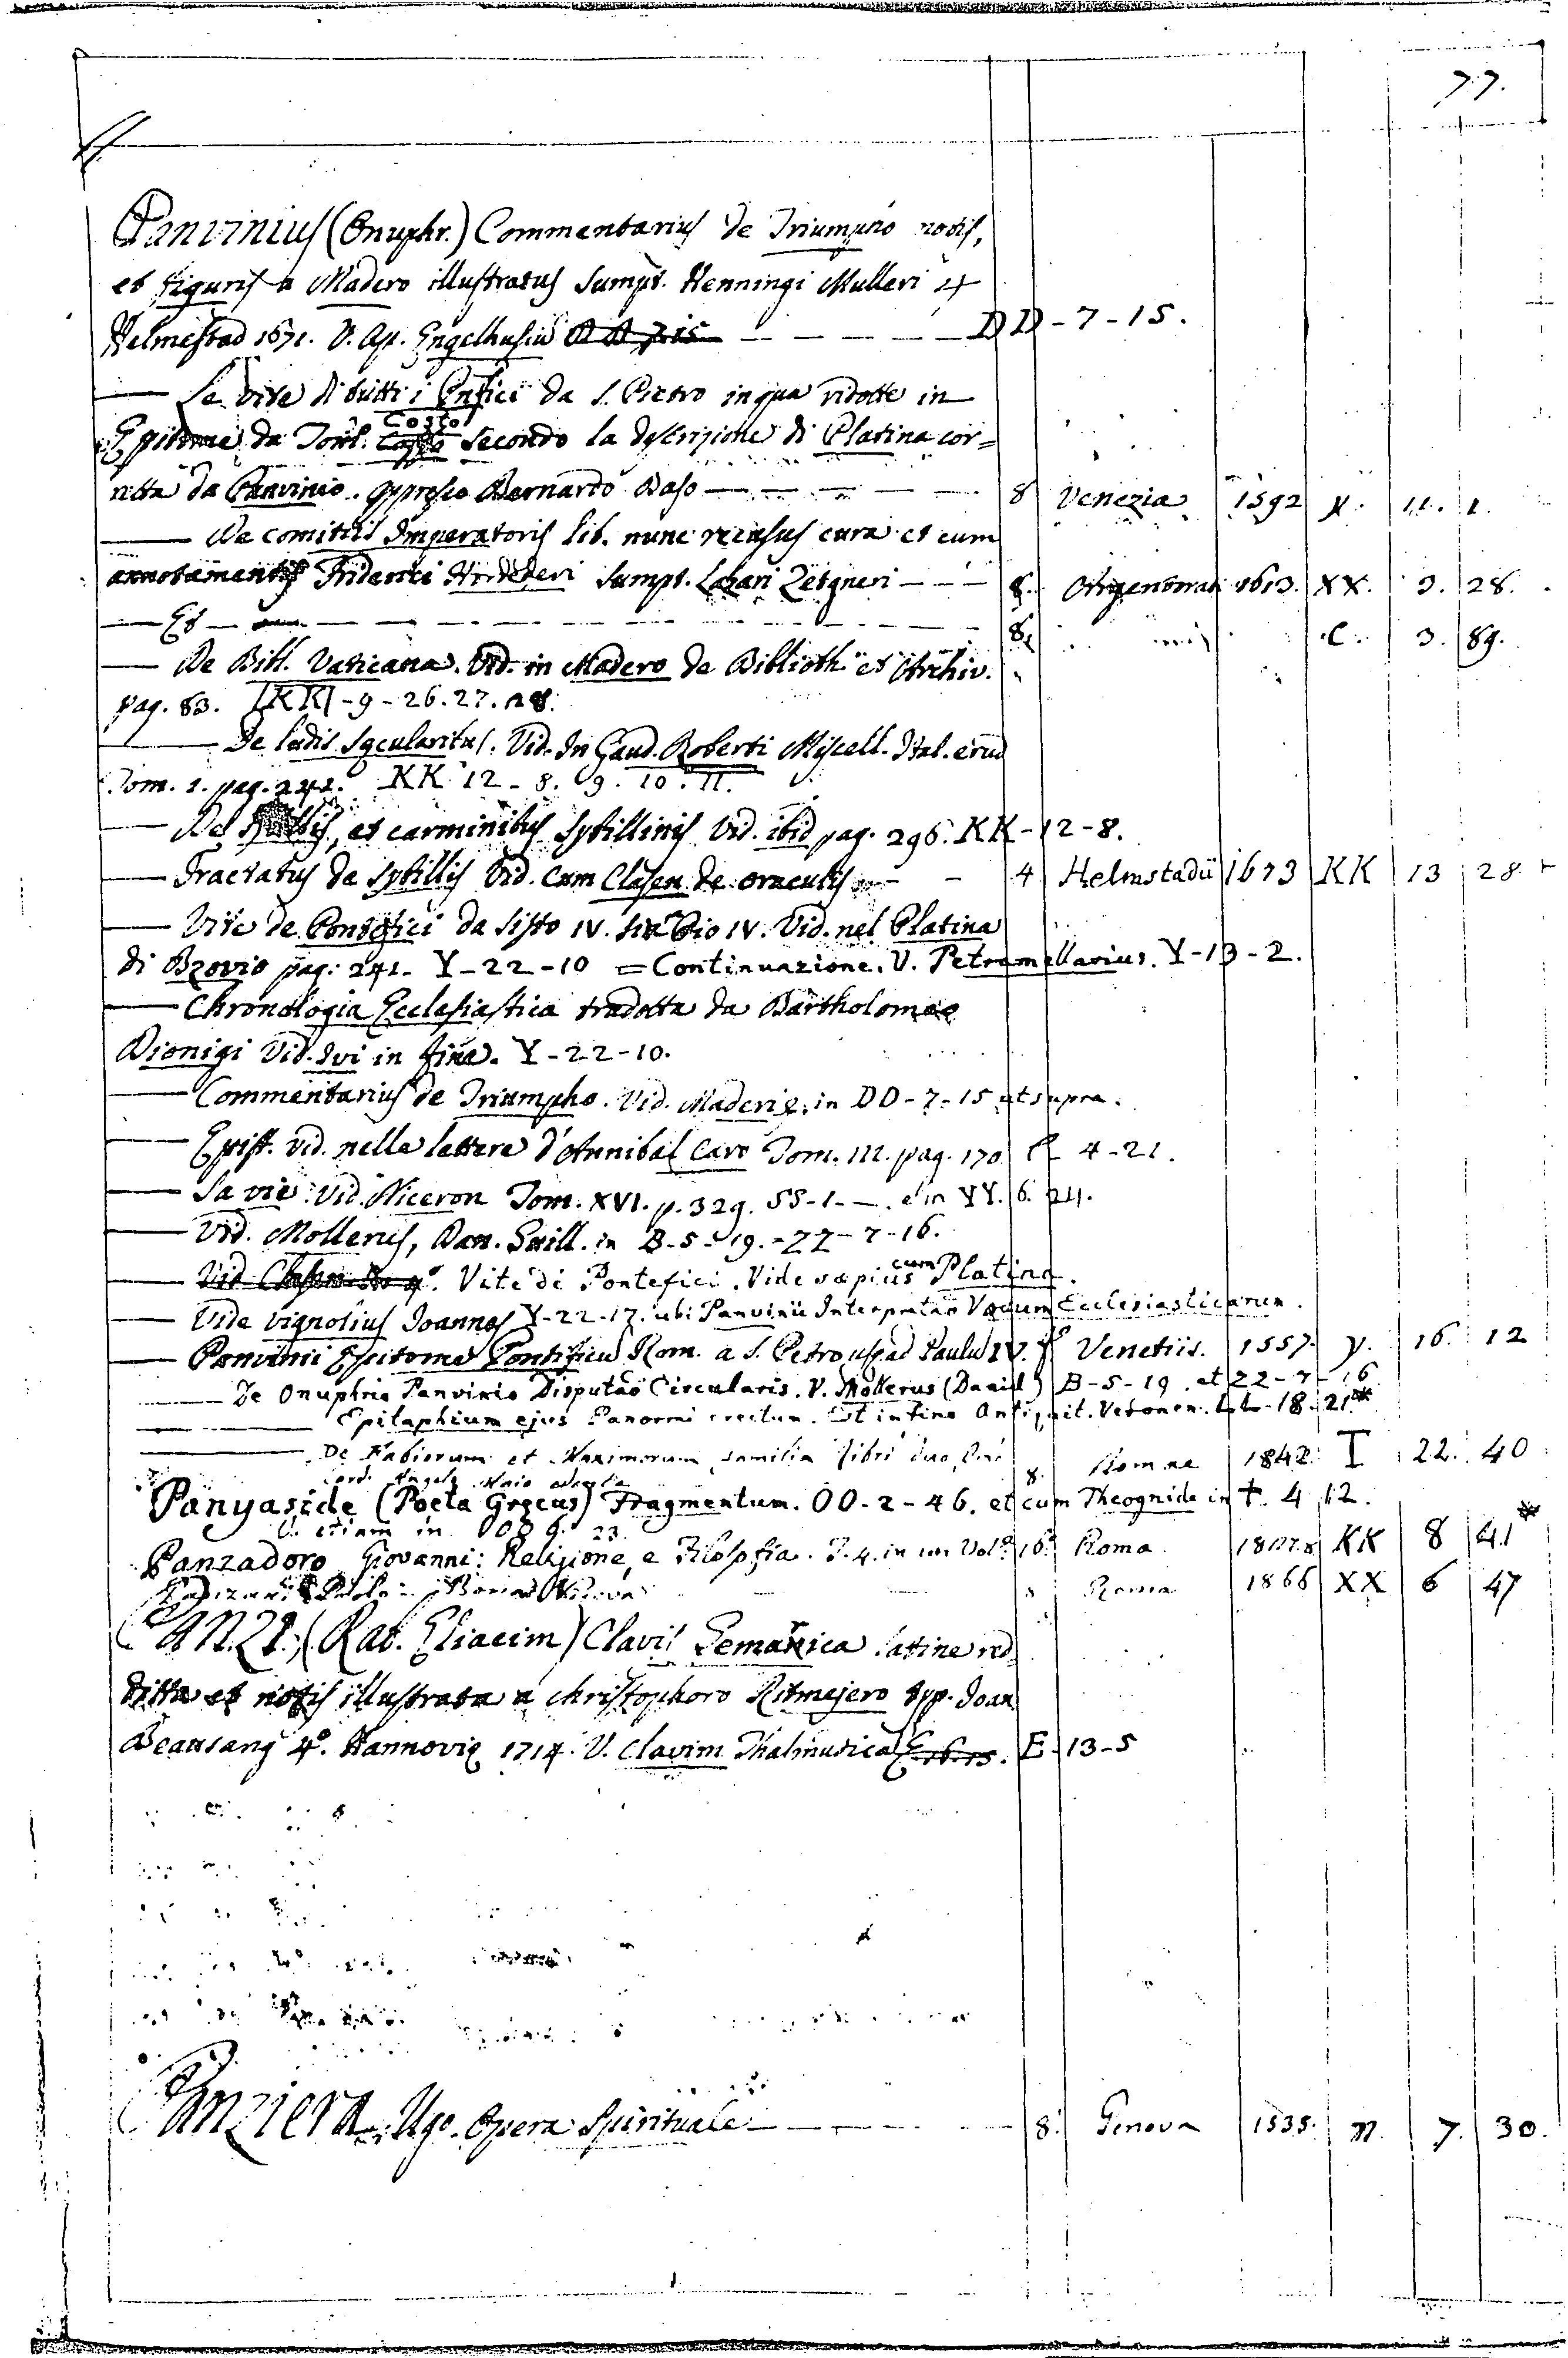 77.
Panvinius (Onuphr.) Commentarius de Triumpho notis,
et figuris a Madero illustratus Sumpt. Henningi Mulleri 4
Helmestad 1671. V. Ap. Engelhusiu D D 7 15 — — — — DD-7-15.
— Le vite di tutti i Pntfici da S. Pietro in qua ridotte in
Epitome da Tom. Costo secondo la descrizione di Platina cor=
retta da Panvinio. appresso Bernardo Baso — — — — 8 Venezia 1592 X. 11. 1.
— De comitiis Imperatoris lib. nunc recusus cura et cum
annotamentis Friderici Hortederi Sumpt. Lazari Zetzneri — — 8. Argentorati 1613. XX. 3. 28.
— Et — — — — — — — 8. C. 3. 89.
— De Bibl. Vaticana. Vid. in Madero de Biblioth. et Archiv.
pag. 83. KK - 9 - 26. 27. 28.
— De ludis Sęcularibus. Vid. In Gaud. Roberti Miscell. Ital. erud
Tom. 1. pag. 242. KK 12 - 8. 9. 10. 11.
— De Sibillis, et carminibus Sybillinis Vid. ibid pag. 296. KK-12-8.
— Tractatus de Sybillis Vid. cum Clasen de oraculis — — 4 Helmstadii 1673 KK 13 28
— Vite de Pontefici da Sisto IV. sin Pio IV. Vid. nel Platina
di Bzovio pag. 241. Y-22-10 = Continuazione. V. Petramellarius. Y-13-2.
— Chronologia Ecclesiastica tradotta da Bartholomeo
Dionigi Vid. Ivi in fine. Y-22-10.
— Commentarius de Triumpho. Vid. Maderię in DD-7-15 ut supra.
— Epist. vid. nelle lettere d'Annibal Caro Tom. III. pag. 170 4-21.
— Sa vie. Vid. Niceron Tom. XVI. p. 329. SS-1-—. e in YY. 6. 24.
— Vid. Mollerus, Dan. Guill. in B-5-19. - ZZ-7-16.
— Vid. Clasen Vite di Pontefici. Vide sæpius cum Platina.
— Vide Vignolius Joannes Y-22-17. ubi Panvinii Interpretatio Vocum Ecclesiasticarum.
— Panvinii Epitome Pontificu Rom. a S. Petro usq. ad Paulu IV. fº Venetiis. 1557. y. 16. 12
— De Onuphrio Panvinio Disputao Circularis. V. Mollerus (Daniel) B-5-19. et ZZ-7-16
— Epitaphium ejus Panormi erectum. Est in fine Antiquit. Veronen. LL-18-21*
— De Fabiorum et Maximorum familia libri duo 8. Romae 1842. I 22. 40
Card. Angelo Maio
Panyaside (Poeta Gręcus) Fragmentum. OO-2-46. et cum Theognide in t. 4 12.
V. etiam in OO 9. 23.
Panzadoro Giovanni: Religione, e Filosofia. T. 4. in un Volº 16º Roma. KK 8 41*
Roma 1866 XX 6 47
Panzi. (Rab. Eliacim) Clavis Gemarica latine red
ditta et notis illustrata a Christophoro Ritmejero typ. Joan
Beausang 4º. Hannovię 1714. V. Clavim Thalmudica E. 16. 15. E-13-5
Panziera Ugo. Opera Spirituale — — — — 8. Genova 1535. n. 7. 30.